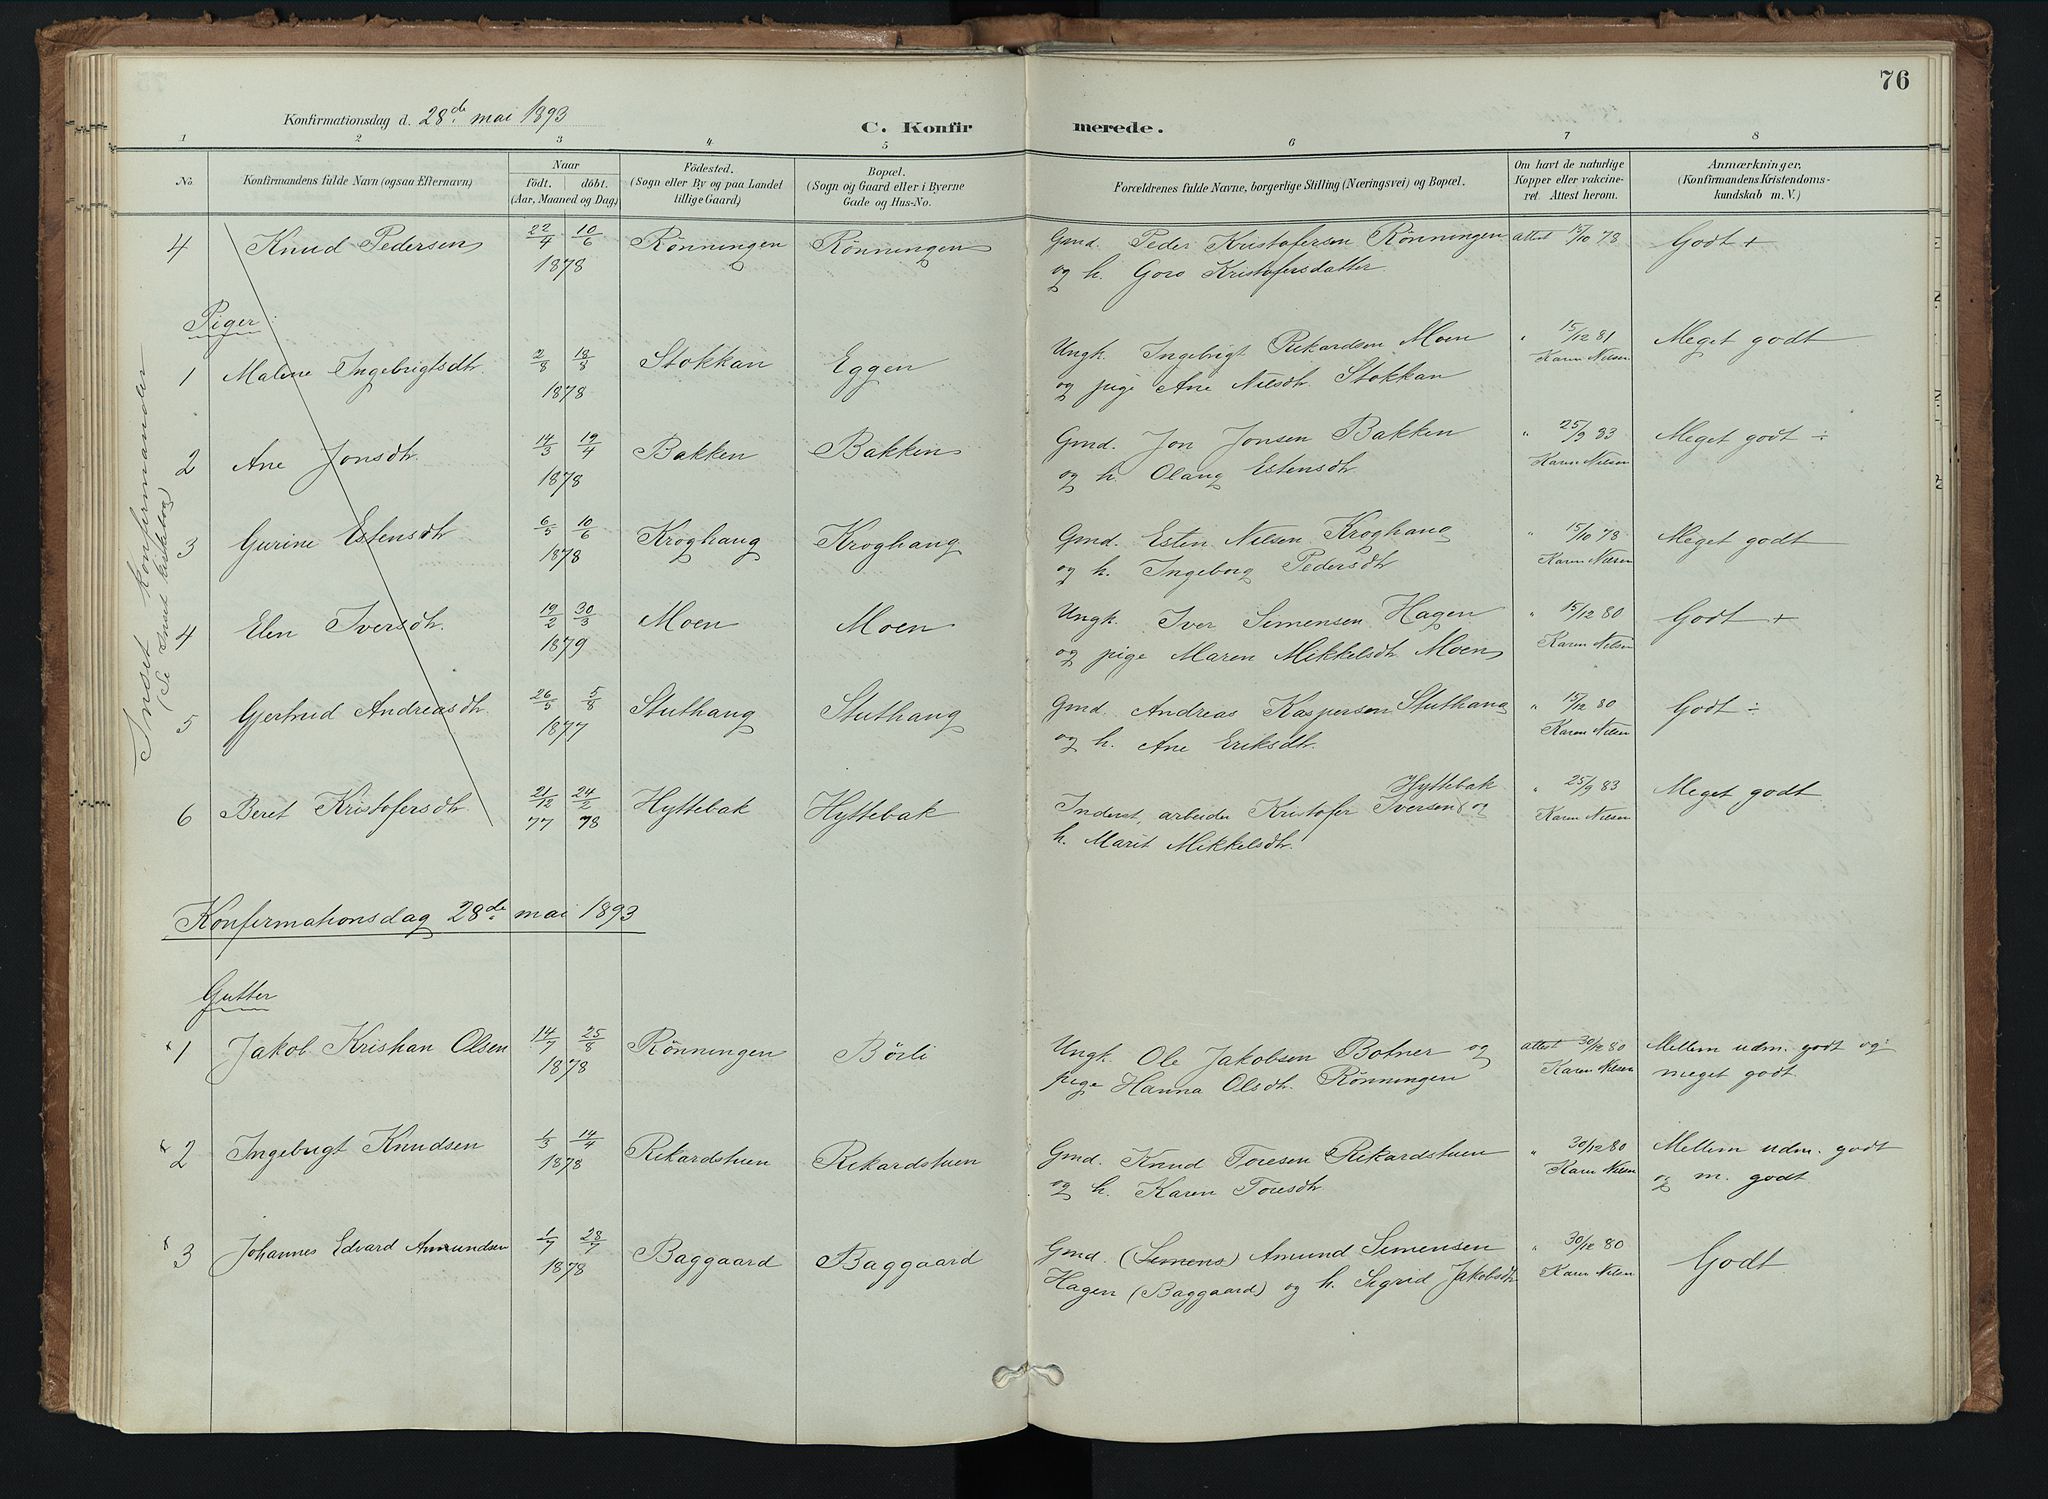 76
Konfirmationsdag d. 28de mai 1893
C. Konfirmerede.
1 2 3 4 5 6 7 8
No. Konfirmandens fulde Navn (ogsaa Efternavn) Naar födt. döbt. (Aar, Maaned og Dag) Födested. (Sogn eller By og paa Landet tillige Gaard) Bopæl. (Sogn og Gaard eller i Byerne Gade og Hus-No. Forældrenes fulde Navne, borgerlige Stilling (Næringsvei) og Bopæl. Om havt de naturlige Kopper eller vakcineret. Attest herom. Anmærkninger, (Konfirmandens Kristendomskundskab m. V.)
Inset konfirmander
(Se Inset kirkebog)
4 Knud Pedersen 22/4 10/6 1878 Rönningen Rönningen Gmd. Peder Kristofersen Rönningen attest 15/10 78 Godt +
og h. Goro Kristofersdatter
Piger
1 Malene Ingebrigtsdtr. 2/8 18/8 1878 Stokkan Eggen Ungk. Ingebrigt Rikardsen Moen " 15/12 81 Meget godt
og pige Ane Nilsdtr Stokkan Karen Nilsen
2 Ane Jonsdtr. 14/3 19/4 1878 Bakken Bakken Gmd. Jon Jonsen Bakken " 25/9 83 Meget godt ÷
og h. Olaug Estensdtr Karen Nilsen
3 Gurine Estensdtr 6/5 10/6 1878 Kroghaug Kroghaug Gmd. Esten Nilsen Kroghaug " 15/10 78 Meget godt
og h. Ingeborg Pedersdtr Karen Nilsen
4 Elen Iversdtr. 19/2 30/3 1879 Moen Moen Ungk. Iver Simensen Hagen " 15/12 80 Godt +
og pige Maren Mikkelsdtr Moen Karen Nilsen
5 Gjertrud Andreasdtr. 26/5 5/8 1877 Stuthaug Stuthaug Gmd. Andreas Kaspersen Stuthaug " 15/12 80 Godt ÷
og h. Ane Eriksdtr. Karen Nilsen
6 Beret Kristofersdtr 21/12 77 24/2 78 Hyttebak Hyttebak Inderst, arbeider Kristofer Iversen Hyttebak og " 25/9 83 Meget godt
h. Marit Mikkelsdtr. Karen Nilsen
Konfirmationsdag 28de mai 1893
Gutter
x1 Jakob Kristian Olsen 14/7 25/8 1878 Rönningen Börli Ungk. Ole Jakobsen Botner og attest 30/12 80 Mellem udm. godt og
pige Hanna Olsdtr. Rönningen Karen Nilsen meget godt
x2 Ingebrigt Knudsen 1/3 14/4 1878 Rikardstuen Rikardstuen Gmd. Knud Toresen Rikardstuen " 30/12 80 Mellem udm. godt
og h. Karen Toresdtr Karen Nilsen og m. godt
x3 Johannes Edvard Amundsen 1/7 28/7 1878 Baggaard Baggaard Gmd. (Simens) Amund Simensen " 30/12 80 Godt
Hagen (Baggaard) og h. Sigrid Jakobsdtr Karen Nilsen